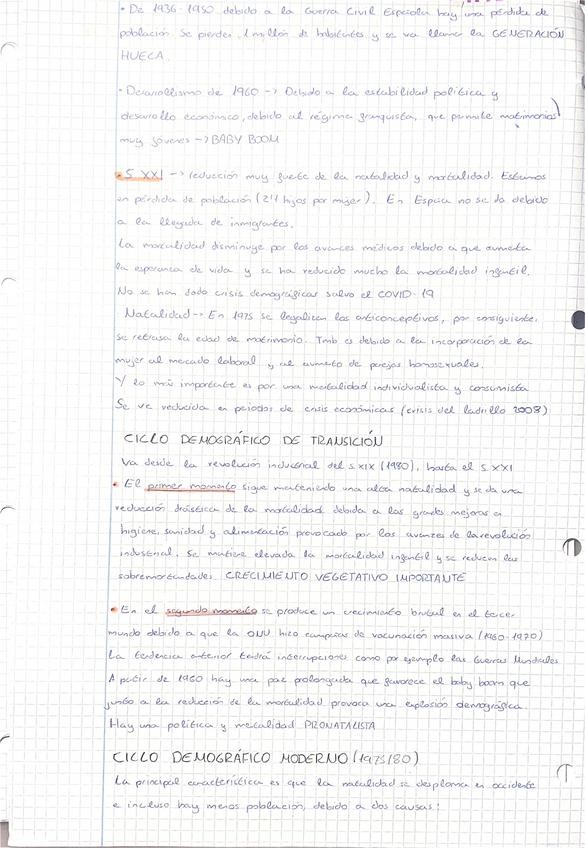 · De 1936-1950 debido a la Guerra Civil Española hay una pérdida de
población. Se pierden 1 millón de habitantes y se va llamar la GENERACIÓN
HUECA.
· Desarrollismo de 1960 -> Debido a la estabilidad política y
desarrollo económico, debido al régimen franquista, que permite matrimonios
muy jóvenes -> BABY BOOM
· S XXI -> reducción muy fuerte de la natalidad y mortalidad. Estamos
en pérdida de población (2'4 hijos por mujer). En España no se da debido
a la llegada de inmigrantes.
La mortalidad disminuye por los avances médicos debido a que aumenta
la esperanza de vida y se ha reducido mucho la mortalidad infantil.
No se han dado crisis demográficas salvo el COVID-19
Natalidad -> En 1975 se legalizan los anticonceptivos, por consiguiente,
se retrasa la edad de matrimonio. Tmb es debido a la incorporación de la
mujer al mercado laboral y al aumento de parejas homosexuales.
Y lo más importante es por una mentalidad individualista y consumista
Se ve reducida en periodos de crisis económicas (crisis del ladrillo 2008)
CICLO DEMOGRÁFICO DE TRANSICIÓN
Va desde la revolución industrial del s XIX (1980), hasta el S.XXI
· El primer momento sigue manteniendo una alta natalidad y se da una
reducción drástica de la mortalidad debida a las grandes mejoras en
higiene, sanidad y alimentación provocado por los avances de la revolución
industrial. Se mantiene elevada la mortalidad infantil y se reducen las
sobremortandades. CRECIMIENTO VEGETATIVO IMPORTANTE
· En el segundo momento se produce un crecimiento brutal en el tercer
mundo debido a que la ONU hizo campañas de vacunación masiva (1960-1970)
La tendencia anterior tendrá interrupciones como por ejemplo las Guerras Mundiales
A partir de 1960 hay una paz prolongada que favorece el baby boom que
junto a la reducción de la mortalidad provoca una explosión demográfica.
Hay una política y mentalidad PRONATALISTA
CICLO DEMOGRÁFICO MODERNO (1975/80)
La principal característica es que la natalidad se desploma en occidente
e incluso hay menos población, debido a dos causas: